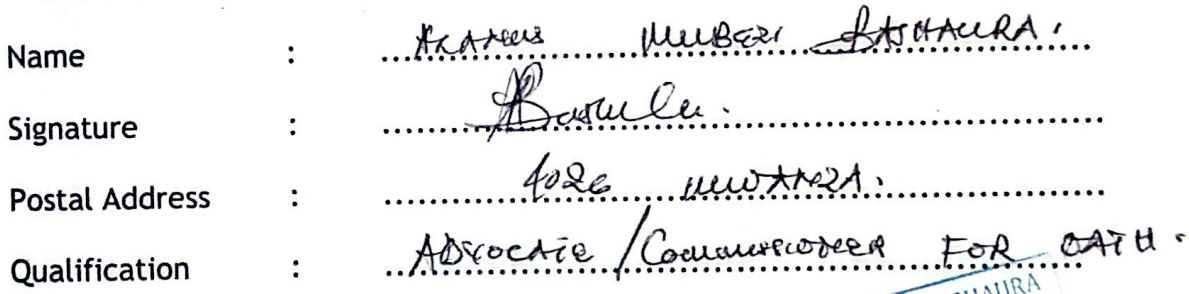 Name : MUBEZI BASHAURA.
Signature :
Postal Address : 4026 MWANZA.
Qualification : ADVOCATE / Commissioner FOR OATH.
HAURA